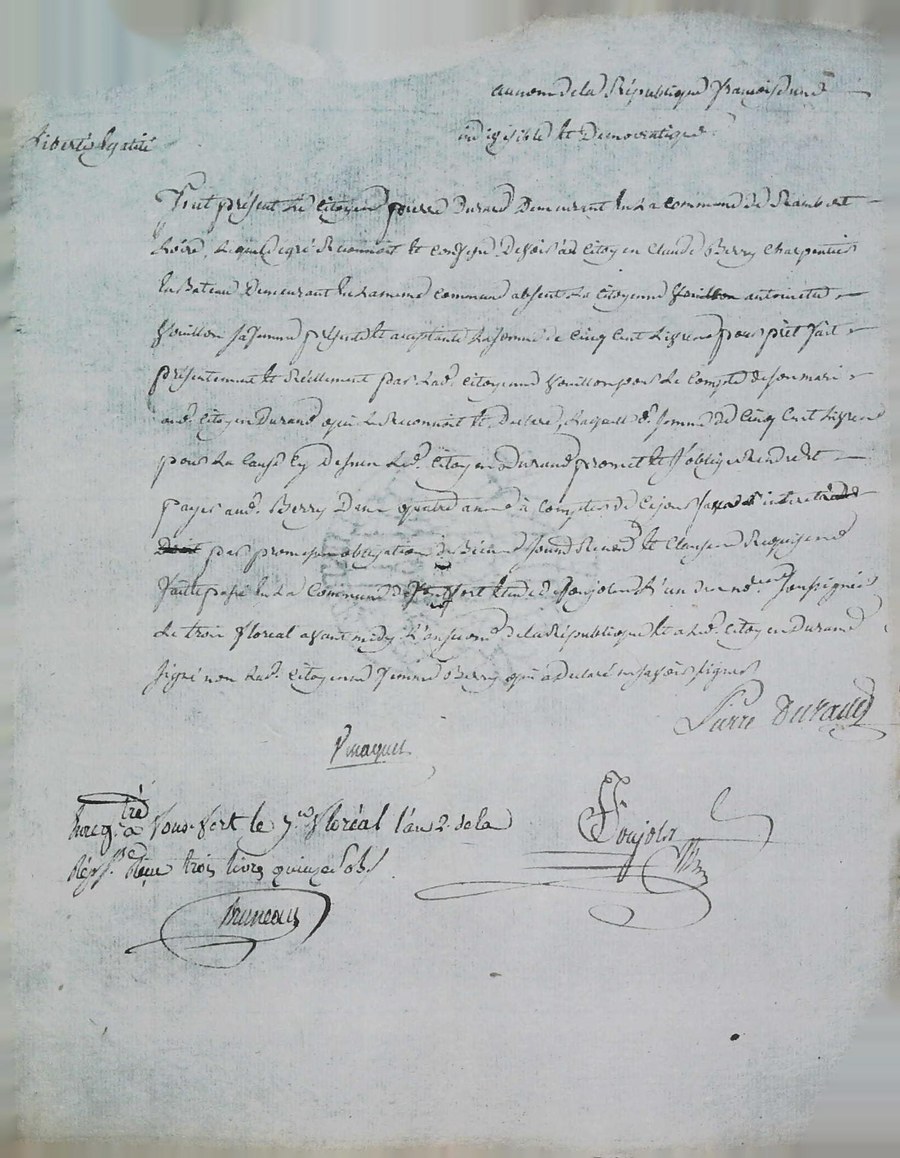 au nom de la République françoise une
indivisible et Democratique
Liberté Egalité
fut présent le Citoyen pierre Durand Demeurant en la commune de Rambert
Loire, lequel de gré Reconnoit et confesse Devoir au Citoyen Claude Berry Charpentier
en Bateau Demeurant en la meme commune absent la Citoyenne antoinette
fouillon sa femme présente et acceptante la somme de Cinq Cent Livres pour prêt fait
présentement et Réellement par lade. Citoyenne fouillon pour le Compte de son mari
aud. Citoyen Durand qui le Reconnoit et Declare, laquelle de. somme de Cinq Cent Livres
pour la Cause Cy Dessus led. Citoyen Durand promet et s'oblige Rendre et
payer aud. Berry Dans quatre année à Compter de Ce jour
par promesse obligation de Biens soumd Renond et Clauses Requises
fait et passé en la Commune de fort Etude de Soujoler L'un des nores. Soussignés
Le trois floreal avant midy L'an second de la République et a led. Citoyen Durand
signé non lade. Citoyenne femme Berry qui a Declaré ne savoir signer
Pierre Durand
Enreg.tré à Vous-fort le 7.e floréal l'an 2. de la
Rép. Reçu trois livres quinze sols
Bruneau